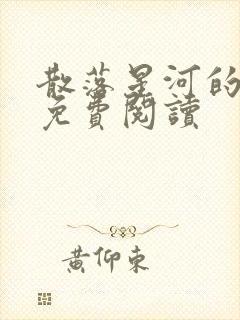 散落星河的
免費閱讀
黃仰東